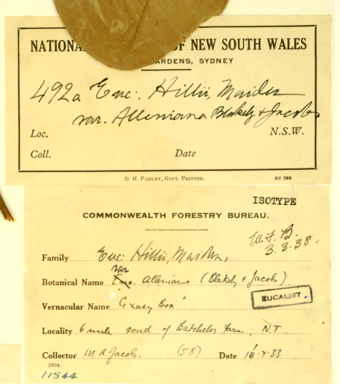 NATIONAL OF NEW SOUTH WALES
GARDENS, SYDNEY
492a Euc. Hillii, Maiden
var. Alleniana Blakely & Jacobs
Loc. N.S.W.
Coll. Date
D. H. PAISLEY, GOVT. PRINTER. ST 783
ISOTYPE
COMMONWEALTH FORESTRY BUREAU.
W.F.B.
3.3.38.
Family Euc: Hillii, Maiden,
var
Botanical Name Euc. Alleniana (Blakely & Jacobs)
Vernacular Name "Grey Box"
EUCALIST
Locality 6 mile south of Batchelor Farm, N.T.
Collector M.R. Jacobs. (58) Date 33
11544